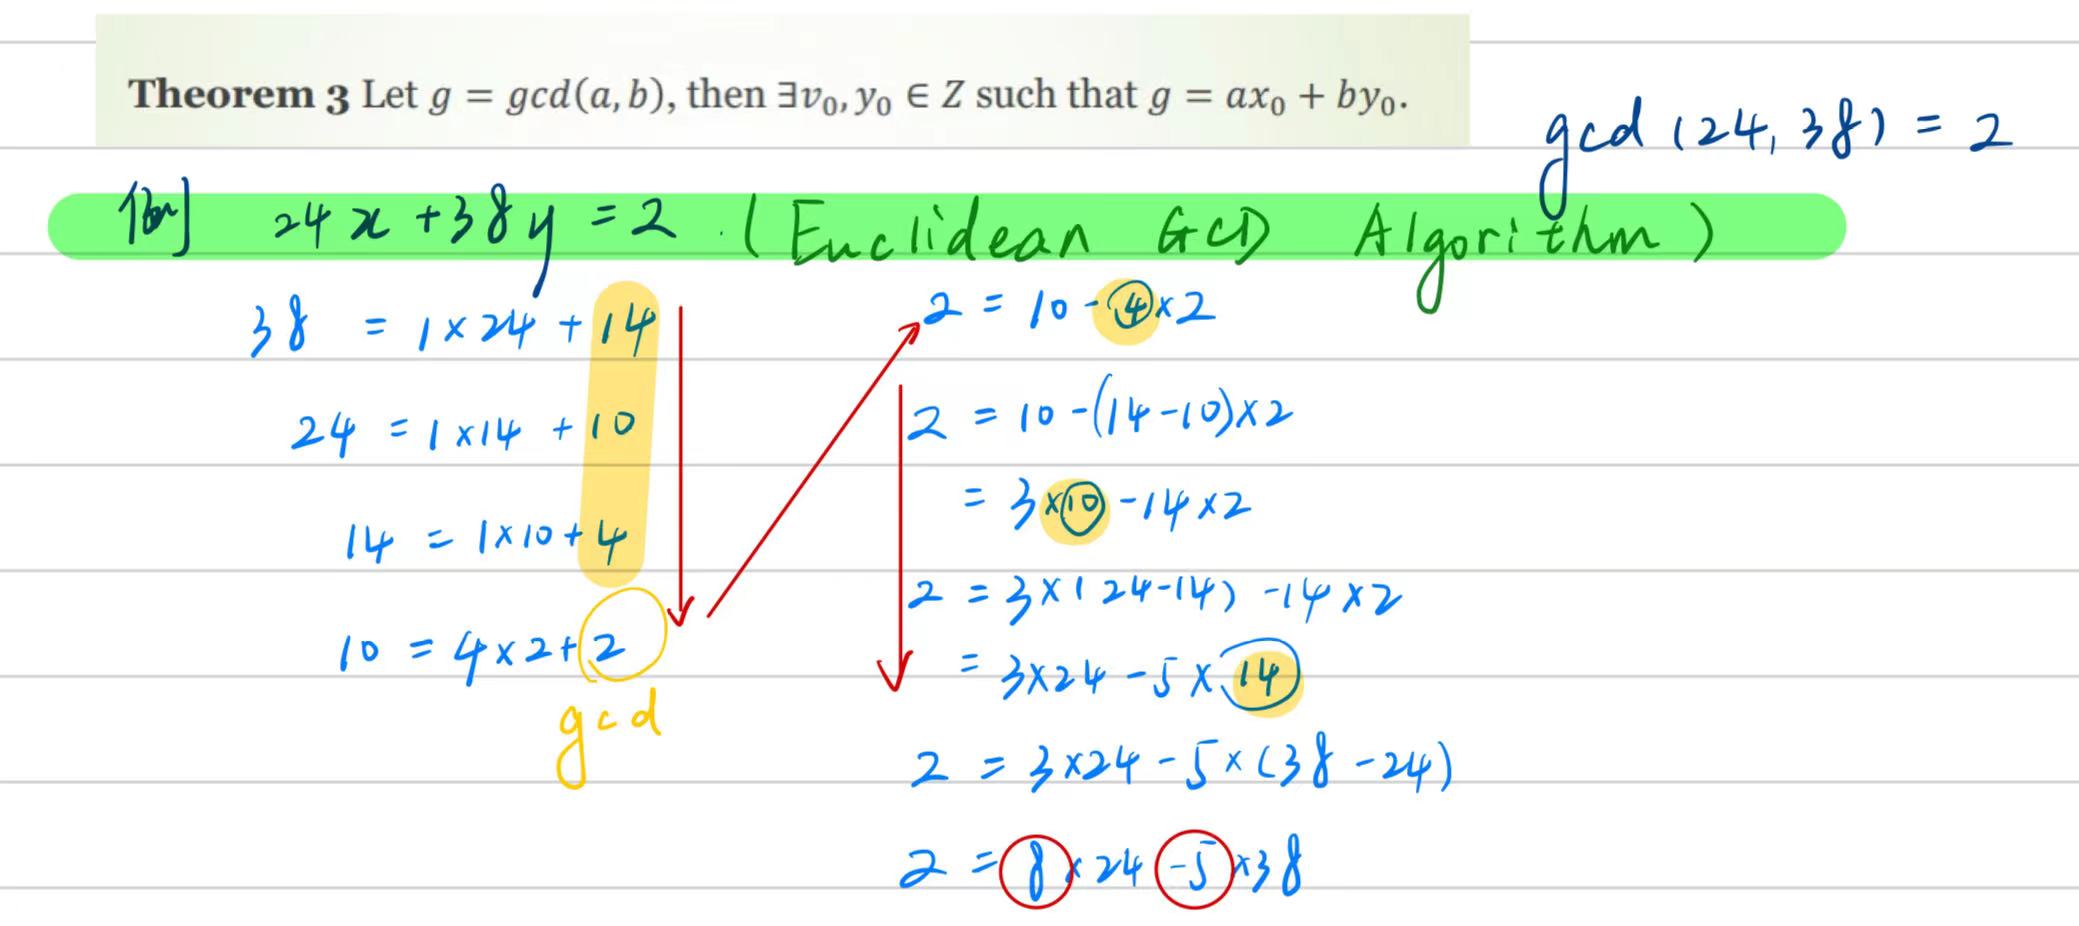 Theorem 3 Let g = gcd(a, b), then ∃v₀, y₀ ∈ Z such that g = ax₀ + by₀.
gcd (24, 38) = 2
例 24x + 38y = 2 . (Euclidean GCD Algorithm)
38 = 1 × 24 + 14
24 = 1 × 14 + 10
14 = 1 × 10 + 4
10 = 4 × 2 + 2
gcd
2 = 10 - 4 × 2
2 = 10 - (14 - 10) × 2
= 3 × 10 - 14 × 2
2 = 3 × (24 - 14) - 14 × 2
= 3 × 24 - 5 × 14
2 = 3 × 24 - 5 × (38 - 24)
2 = 8 × 24 - 5 × 38